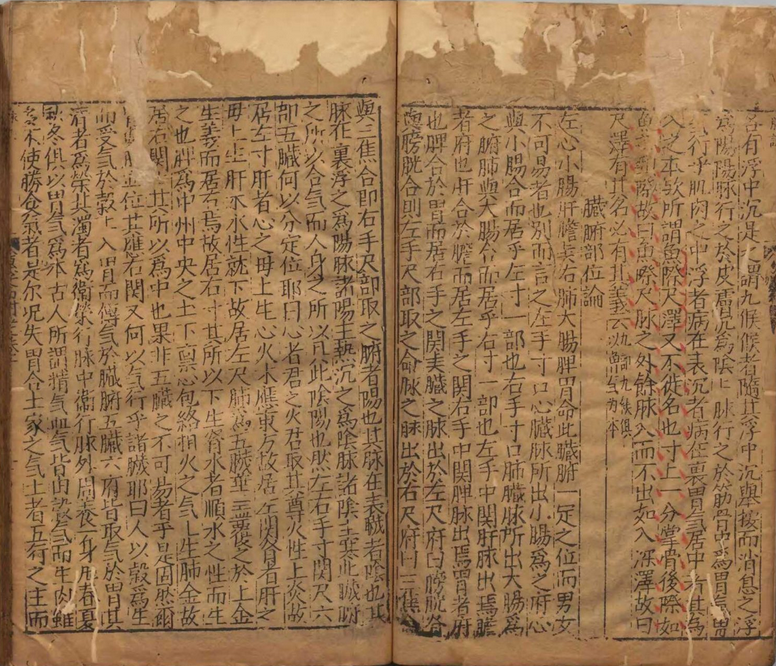 各有浮中沉是謂九候候者隨其浮中沉與按而消息之浮
為陽陽脉行之於皮膚沉為陰陰脉行之於筋骨中為胃
行乎肌肉之中浮者病在表沉者病在裏胃氣居中者其為
入之本歟所謂魚際尺澤又不徒名也寸上一分掌骨後際如
魚際故曰魚際尺脉之外餘脉入而不出如入深澤故曰
尺澤有其名必有其義
臟腑部位論
左心小腸肝膽與右肺大腸脾胃命此臟腑一定之位而男女
不可易者也別而言之左手寸口心臟脉所出小腸為之府心
與小腸合而居乎左寸一部也右手寸口肺臟脉所出大腸為
之腑肺與大腸合而居乎右寸一部也左手中關肝脉出焉膽
者府也肝合於膽而居左手之關右手中關脾脉出焉胃者府
也脾合於胃而居右手之關腎臟之脉出於左尺府曰膀胱腎
與膀胱合則左手尺部取之命脉之脉出於右尺府曰三焦命
與三焦合即右手尺部取之腑者陽也其脉在表臟者陰也其
脉在裏浮之為陽脉諸陽主熱沉之為陰脉諸陰主其臟腑
之所以合氣而人身之所以具此陰陽也然左右手寸關尺六
部五臟何以分定位耶曰心者君之火君取其尊火性上炎故
居左寸肝者心之毋上生心火木應東方故居左關腎者肝之
毋上生肝木水性就下故居左尺肺為五臟華蓋覆之於上金
生義而居右焉故居右寸其所以下生腎水者順水之性而生
之也脾為中州中央之土下稟心包絡相火之氣上生肺金故
居右關其所以為中也果非五臟之不可易者乎是固然爾
位其應右關又何以氣行乎諸臟耶曰人以穀為生
而受氣於穀上入胃而傳氣於臟腑五臟六府皆取氣於胃其
清者為榮其濁者為衛榮行脉中衛行脉外周養一身春夏
秋冬俱以胃氣為本古人所謂精氣血氣皆由穀氣而生肉雖
多不使勝食氣者是尔况失胃合土家之氣土者五行之主而